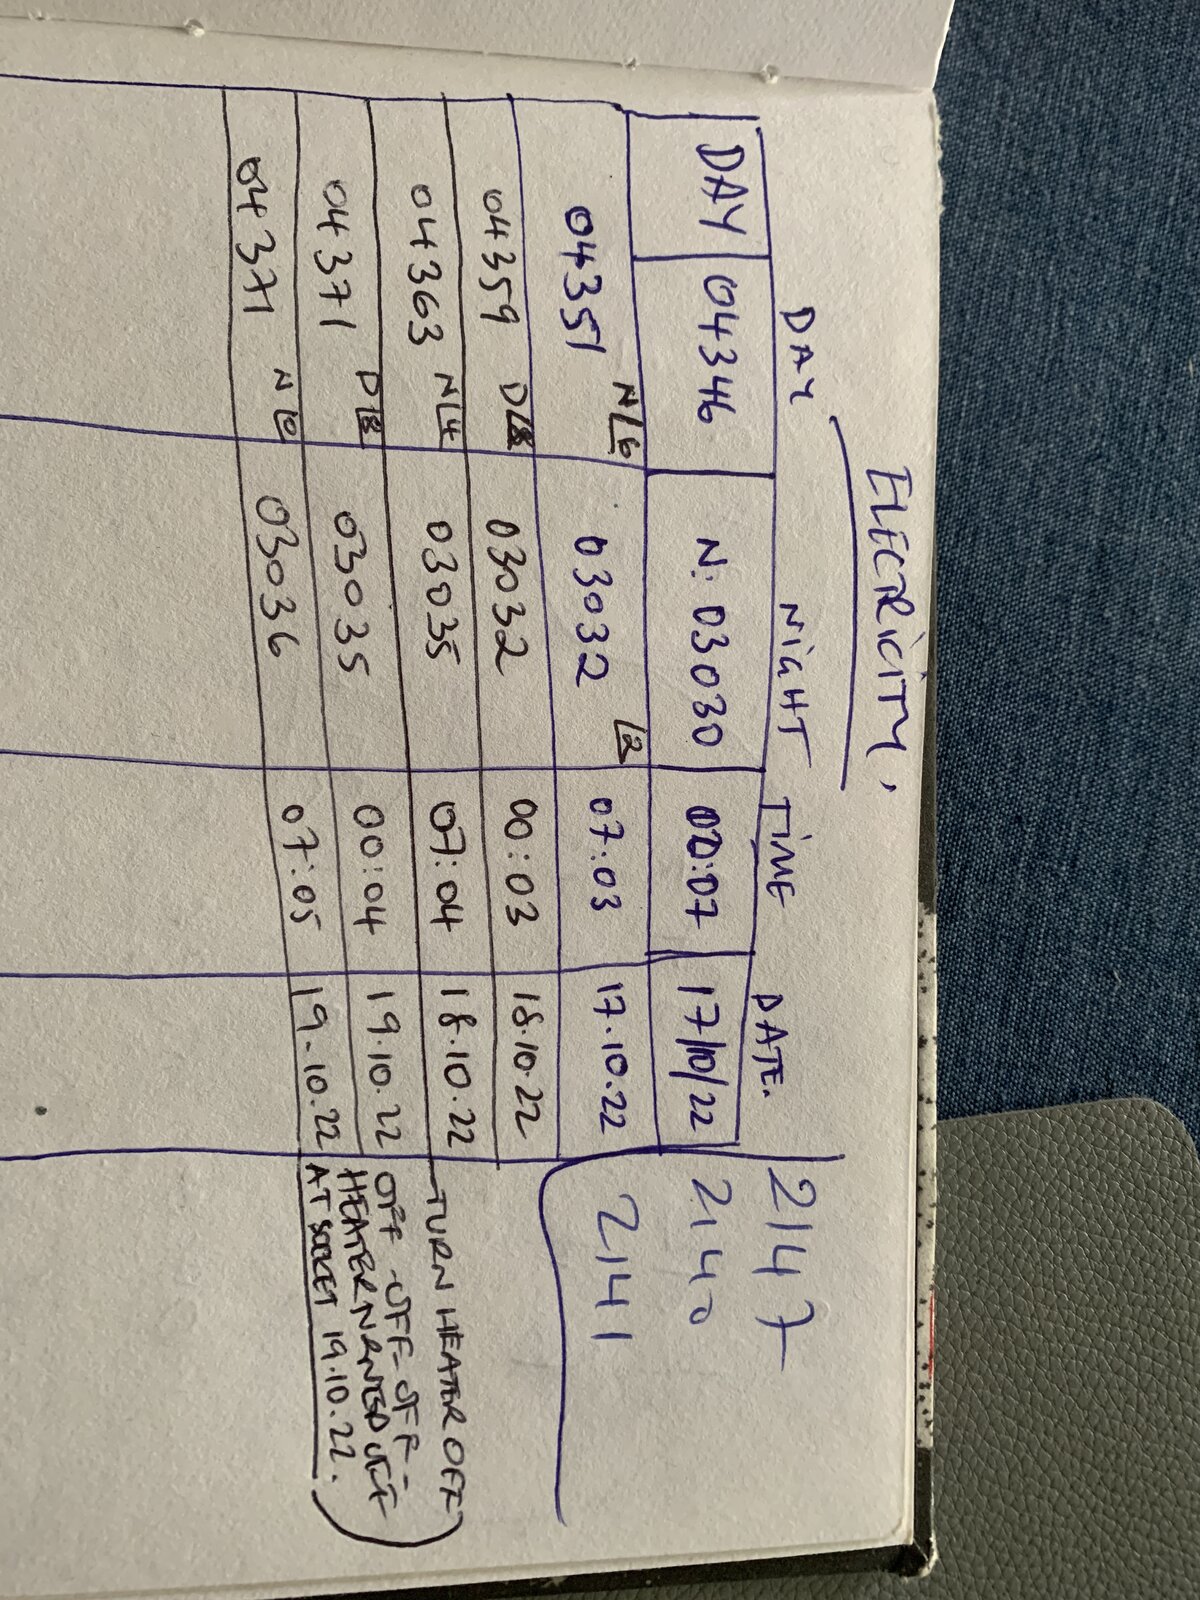 ELECTRICITY,
DAY NIGHT TIME DATE. 2147
DAY 04346 N: 03030 00:07 17/10/22 2140
04351 N/6 03032 2 07:03 17.10.22 2141
04359 D/8 03032 00:03 18.10.22
04363 N/4 03035 07:04 18.10.22 TURN HEATER OFF
04371 D/8 03035 00:04 19.10.22 OFF - OFF - OFF -
HEATER OFF
04371 N/0 03036 07:05 19.10.22 AT SOCKET 19.10.22.